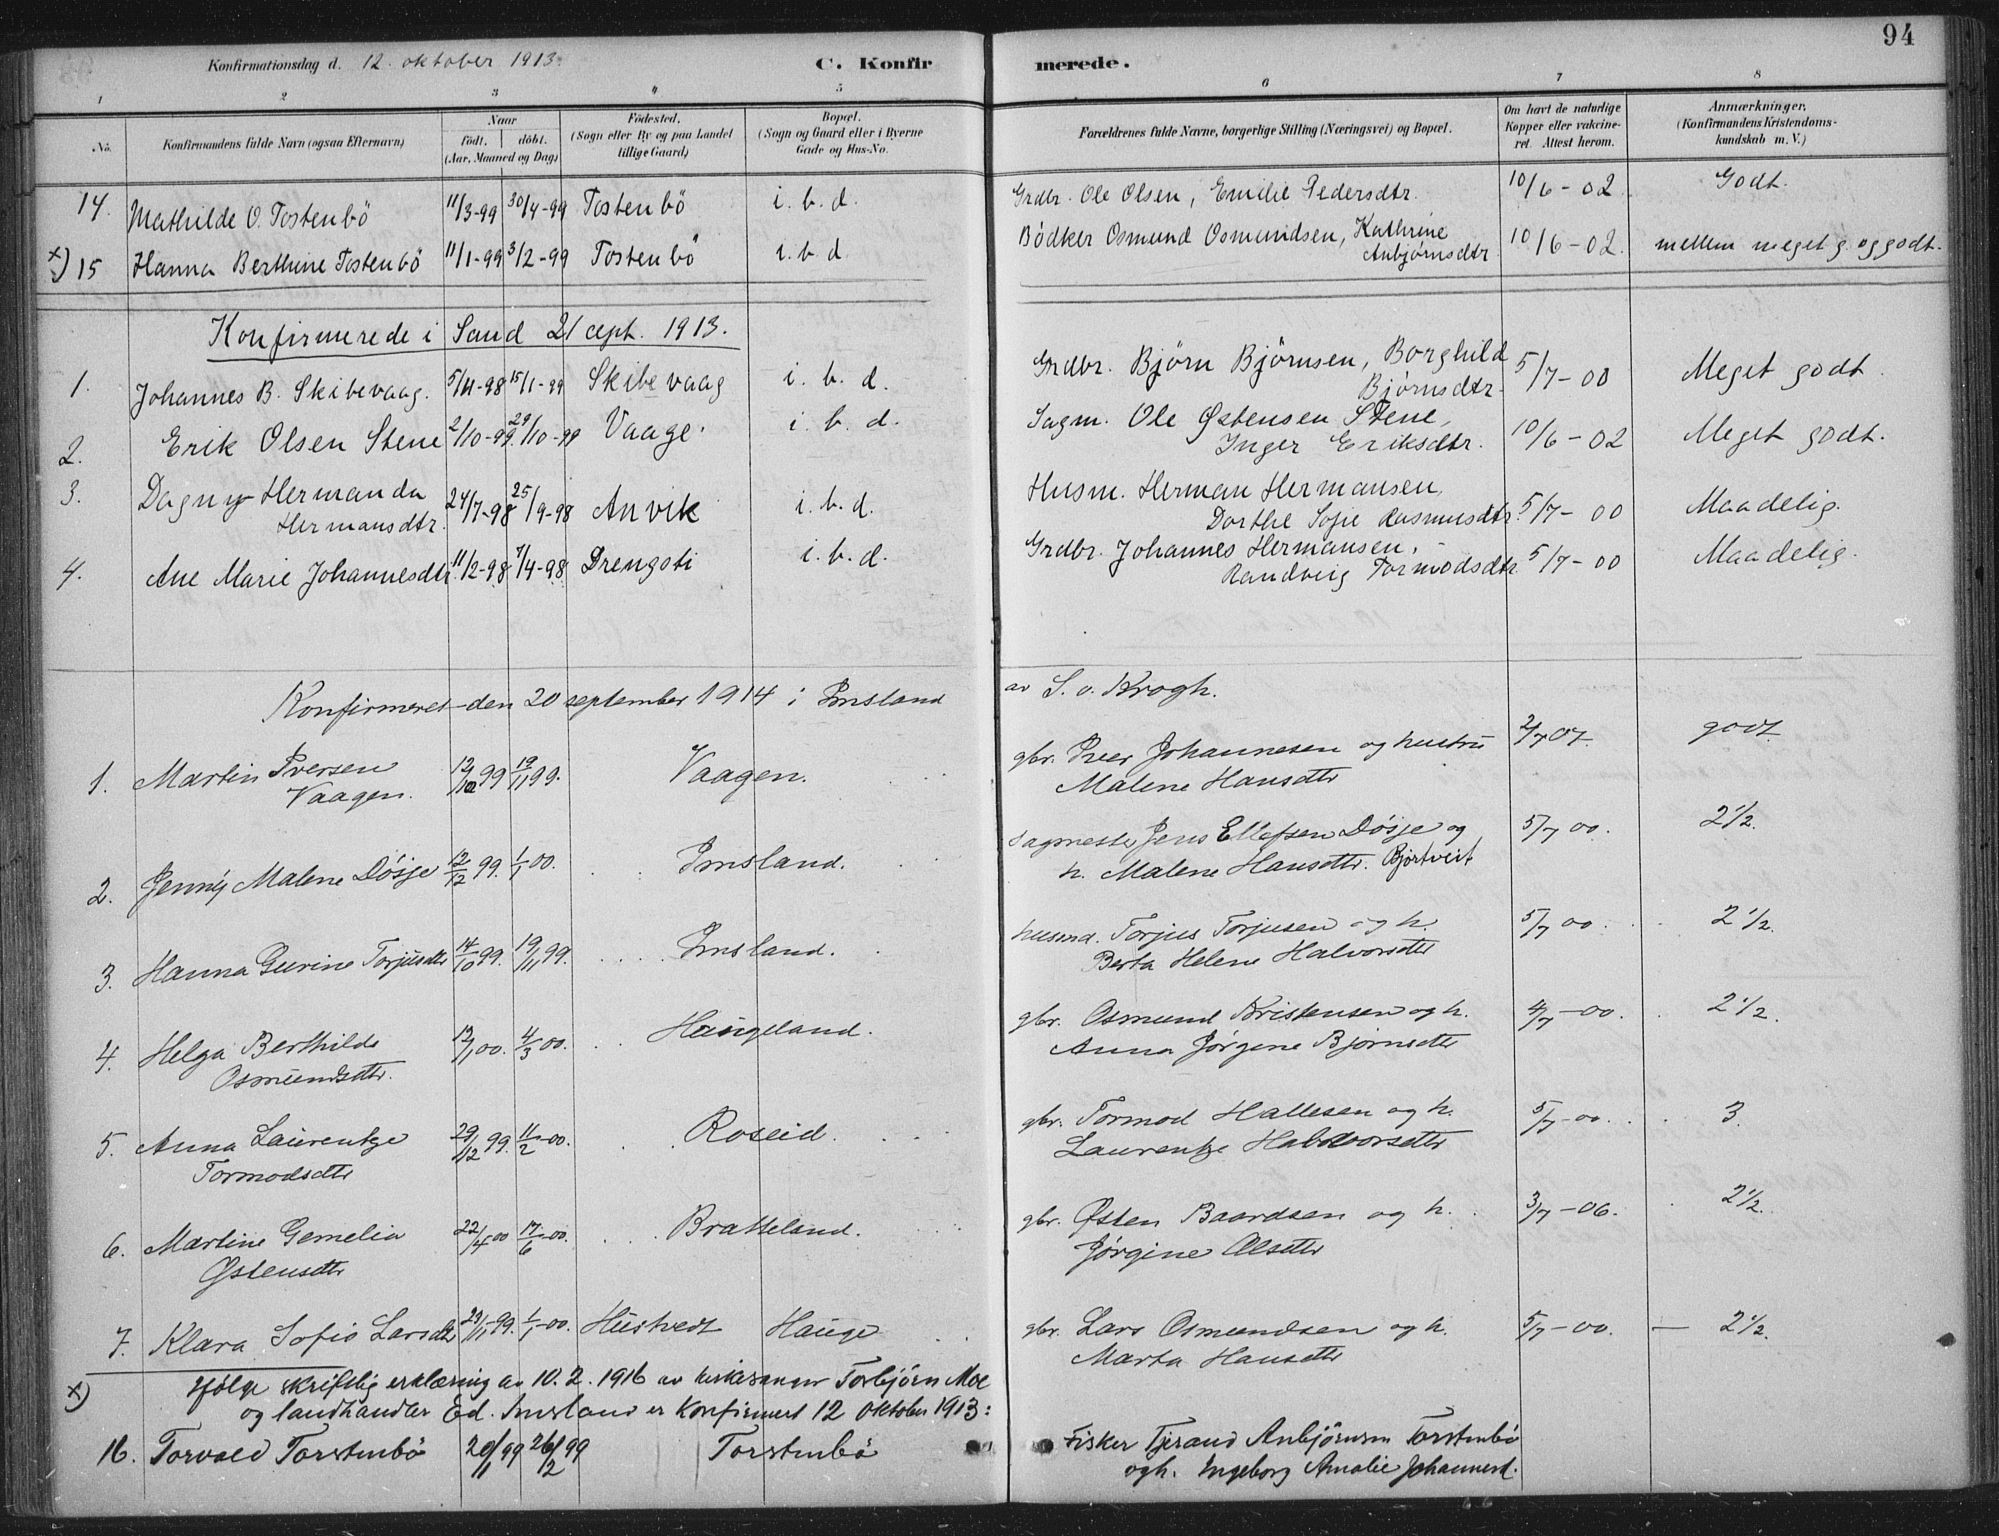 94
Konfirmationsdag d. 12. oktober 1913. C. Konfirmerede.
1 2 3 4 5 6 7 8
No. Konfirmandens fulde Navn (ogsaa Efternavn) Naar født. døbt. (Aar, Maaned og Dag) Fødested. (Sogn eller By og paa Landet tillige Gaard) Bopæl. (Sogn og Gaard eller i Byerne Gade og Hus-No. Forældrenes fulde Navne, borgerlige Stilling (Næringsvei) og Bopæl. Om havt de naturlige Kopper eller vakcineret. Attest herom. Anmærkninger. (Konfirmandens Kristendomskundskab m. V.)
14. Mathilde O. Tostenbö 11/3-99 30/4-99 Tostenbö i. b. d. Grdbr. Ole Olsen, Emilie Pedersdtr. 10/6-02 Godt.
x) 15 Hanna Berthine Tostenbö 11/1-99 3/2-99 Tostenbö i. b. d. Bödker Osmund Osmundsen, Kathrine
Anbjørnsdtr. 10/6-02. mellem meget g. og godt.
Konfirmerede i Sand 21 sept. 1913.
1. Johannes B. Skibevaag. 5/11-98 15/1-99 Skibevaag i. b. d. Grdbr. Bjørn Bjørnsen, Borghild
Bjørnsdtr. 5/7-00 Meget godt.
2. Erik Olsen Stene 2/10-99. 29/10-99 Vaage. i. b. d. Sagm. Ole Østensen Stene,
Inger Eriksdtr. 10/6-02 Meget godt.
3. Dagny Hermanda
Hermansdtr. 24/7-98 25/9-98 Anvik i. b. d. Husm. Herman Hermansen,
Dorthe Sofie Rasmusdtr. 5/7-00 Maadelig.
4. Ane Marie Johannesdtr. 11/2-98 7/4-98 Drengsti i. b. d. Grdbr. Johannes Hermansen,
Randveig Tormodsdtr. 5/7-00 Maadelig.
Konfirmeret den 20 september 1914 i Imsland av S. v. Krogh.
1. Martin Iversen
Vaagen. 12/10 99 19/11 99. Vaagen. gbr. Iver Johannesen og hustru
Malene Hansdtr 2/7 07. godt.
2. Jenny Malene Døsje 12/12 99. 1/1 00. Imsland. Sagmester Jens Ellefsen Døsje og
h. Malene Hansdtr. Bjørtveit 5/7 00. 2 1/2.
3. Hanna Gurine Torjusdtr 14/10 99. 19/11 99. Imsland. husmd. Torjus Torjusen og h.
Berta Helene Halvorsdtr 5/7 00. 2 1/2.
4. Helga Berthilde
Osmundsdtr. 12/1 00. 4/3 00. Haugeland. gbr. Osmund Kristensen og h.
Anna Jørgine Bjørnsdtr 4/7-00. 2 1/2.
5. Anna Laurentze
Tormodsdtr 29/12 99. 11/2-00. Roseid. gbr. Tormod Hallesen og h.
Laurentze Halvorsdtr 5/7-00. 3.
6. Martine Gemelia
Østensdtr 22/4 00 17/6-00. Bratteland. gbr. Østen Baardsen og h.
Jørgine Olsdtr 3/7-06. 2 1/2.
7. Klara Sofie Larsdtr 23/11-99. 1/1-00. Hustvedt Hauge gbr. Lars Osmundsen og h.
Marta Hansdtr 5/7-00. — 2 1/2.
x) Ifølge skriftlig erklæring av 10. 2. 1916 av kirkesanger Torbjørn Moe
og landhandler Ed. Imsland er konfirmert 12 oktober 1913:
16. Torvald Torstenbö 20/11 99 26/12 99 Torstenbö Fisker Tjerand Anbjørnsen Torstenbö
og h. Ingeborg Amalie Johannesd.